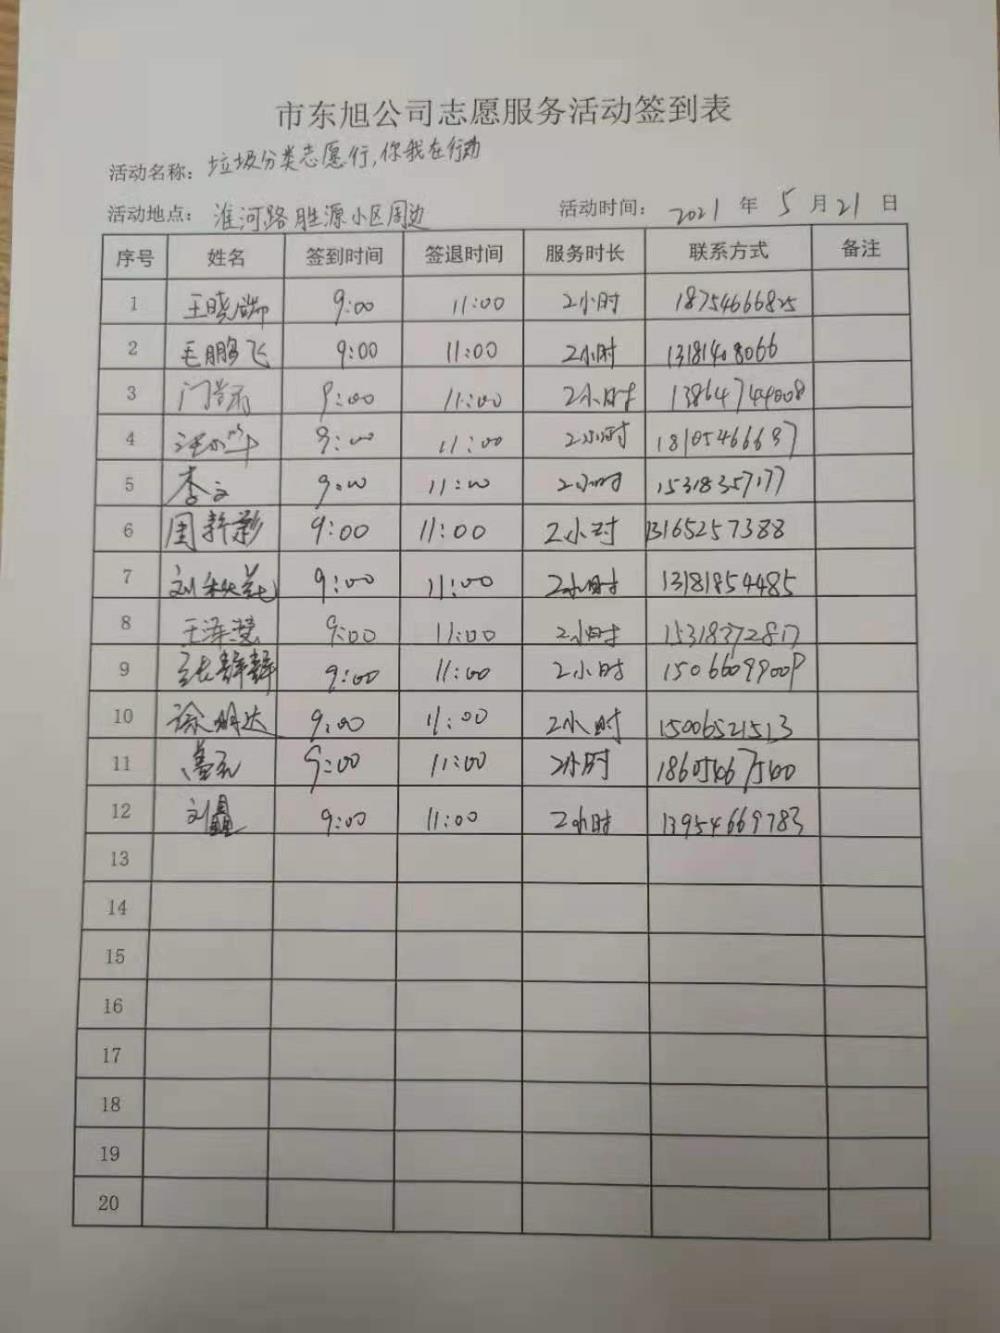 市东旭公司志愿服务活动签到表
活动名称：垃圾分类志愿行,你我在行动
活动地点：淮河路胜源小区周边 活动时间：2021 年 5 月 21 日
序号 姓名 签到时间 签退时间 服务时长 联系方式 备注
1 王晓 9:00 11:00 2小时 18754666825
2 毛鹏飞 9:00 11:00 2小时 13181408066
3 9:00 11:00 2小时 13864744008
4 9:00 11:00 2小时 18105466637
5 李文 9:00 11:00 2小时 15318357177
6 周 9:00 11:00 2小时 13165257388
7 刘秋花 9:00 11:00 2小时 13181854485
8 王泽慧 9:00 11:00 2小时 15318372817
9 张群群 9:00 11:00 2小时 15066099009
10 徐明达 9:00 11:00 2小时 15006521513
11 9:00 11:00 2小时 18605467500
12 刘鑫 9:00 11:00 2小时 13954669783
13
14
15
16
17
18
19
20